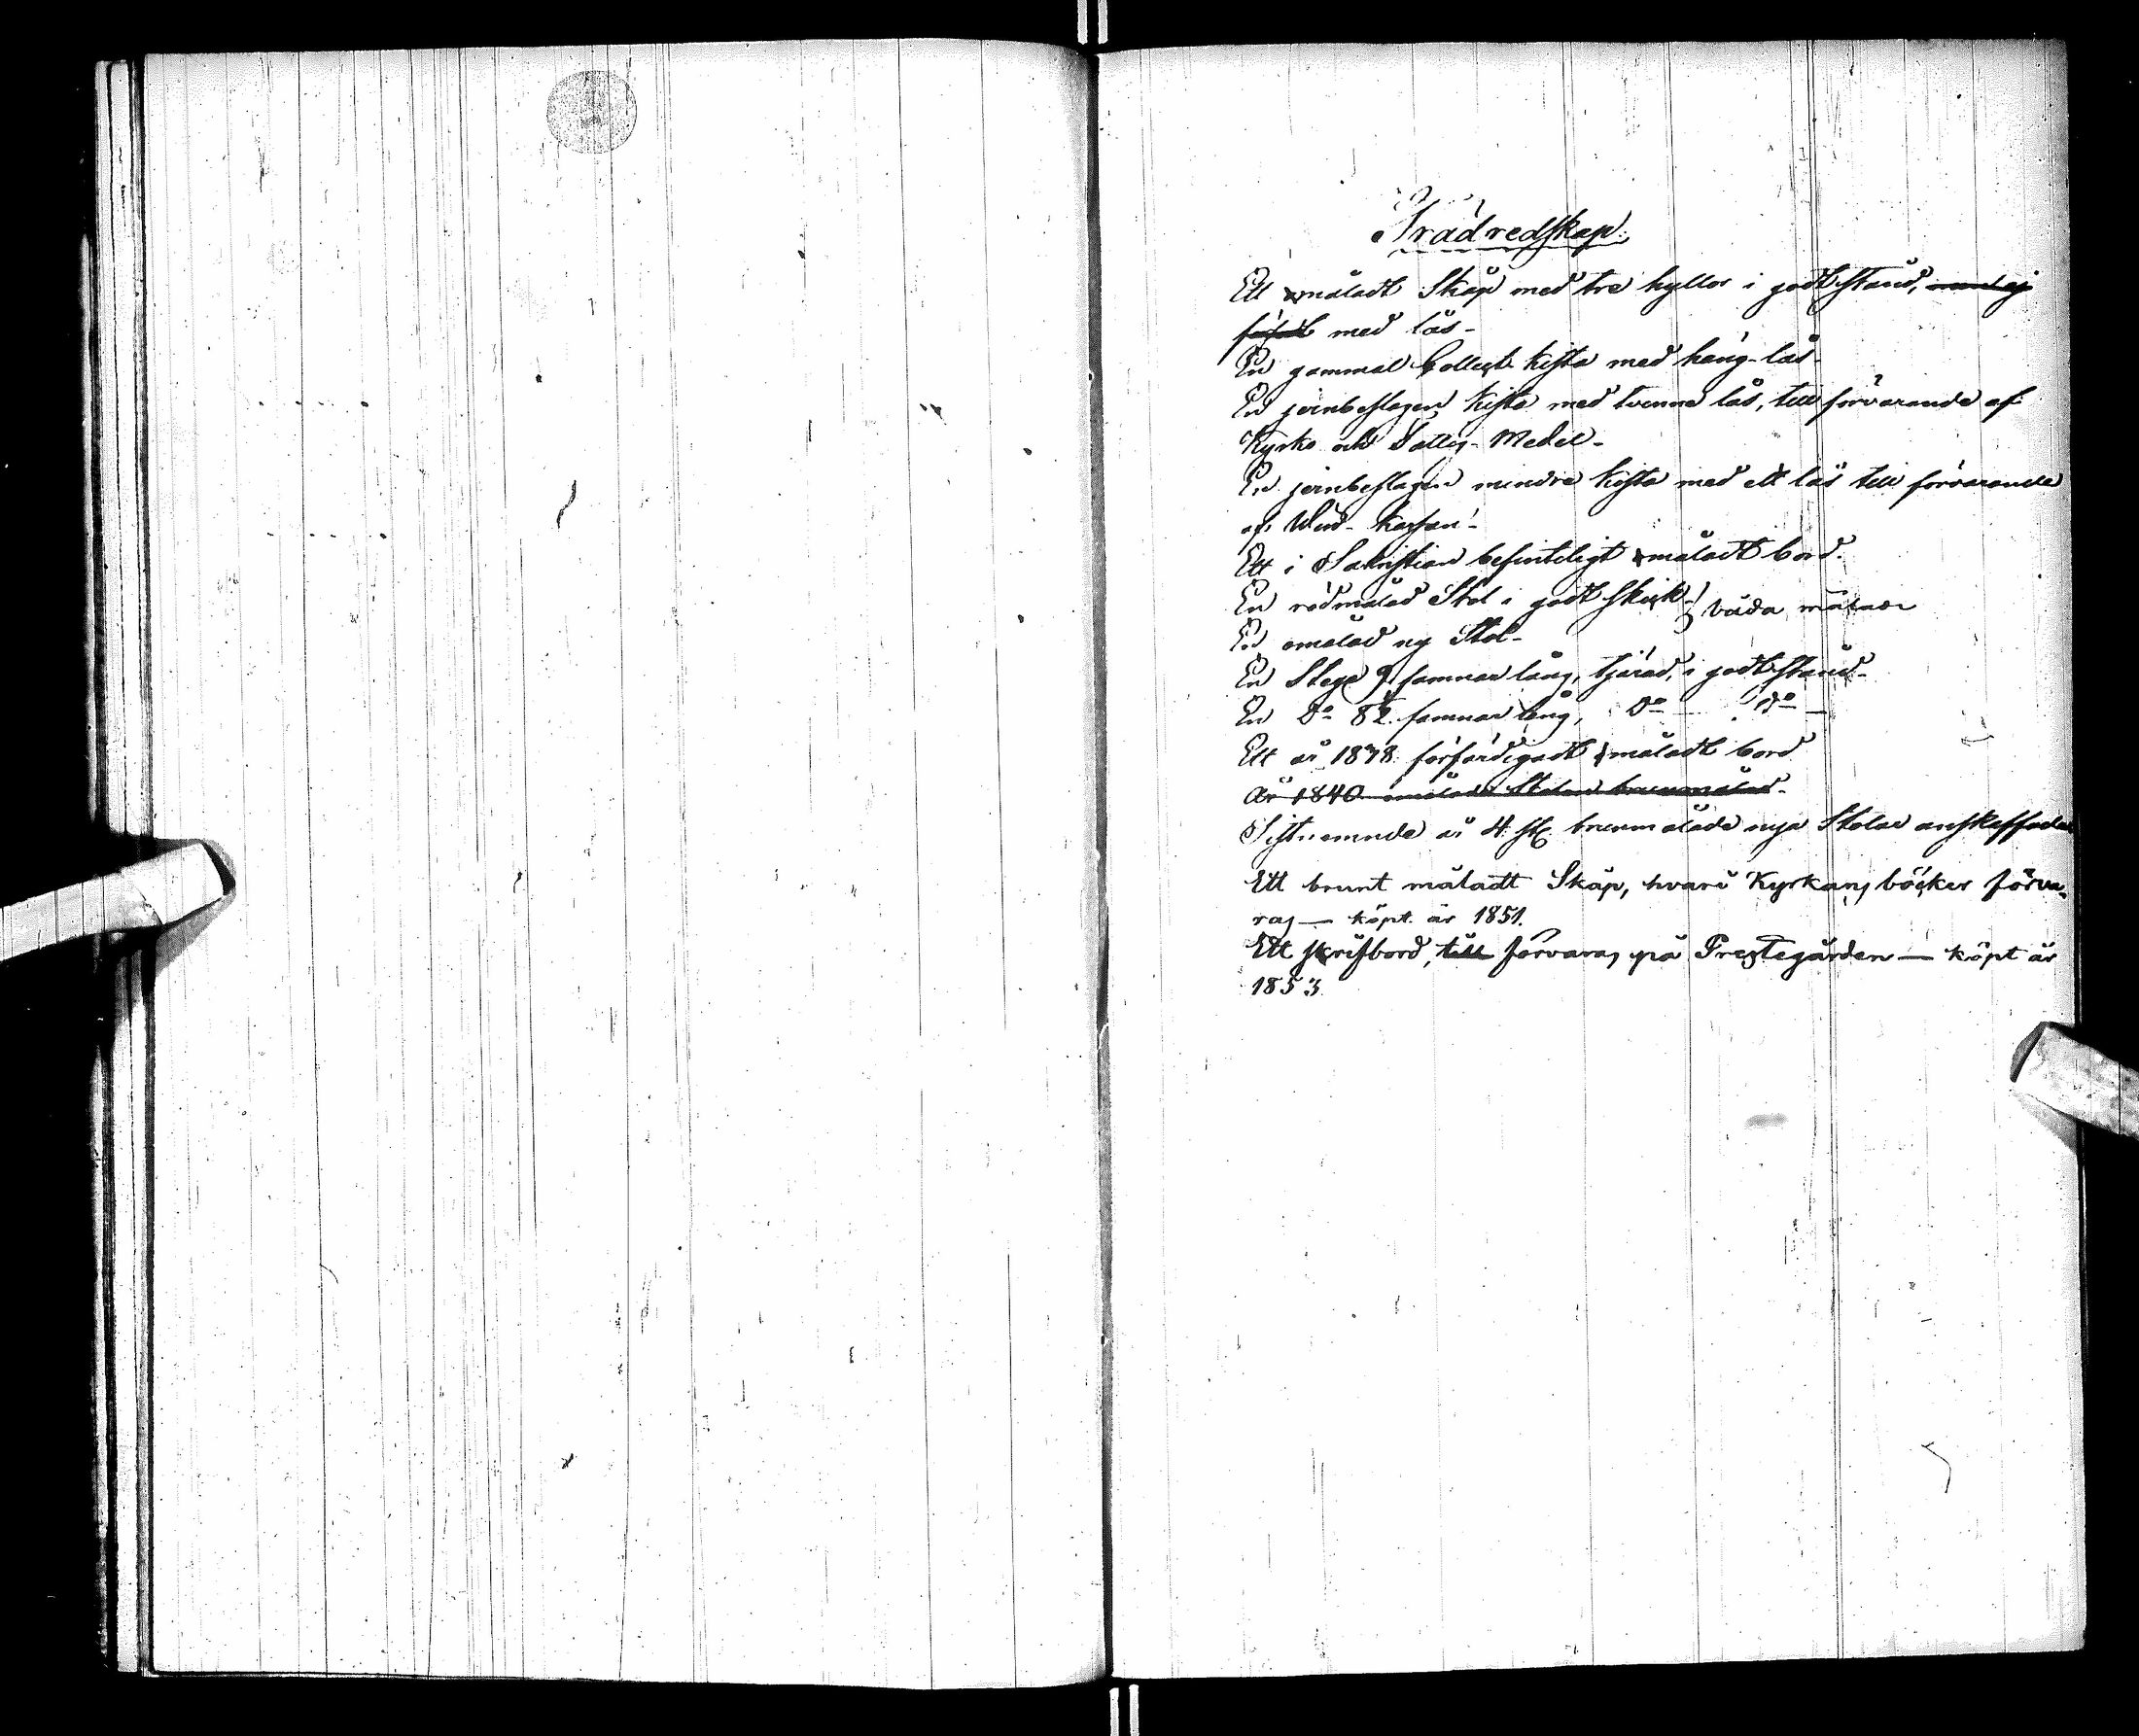 Trädredskap.
Ett måladt Skåp med tre hyllor i godt stånd, men ej
försedt med lås-
En gammal Collect-kista med häng-lås-
En jernbeslagen kista med tvenne lås, till förvarande af
Kyrko och Fattig-Medel-
En jernbeslagen mindre kista med ett lås till förvarande
af Kassan-
Ett i Sakristian befinteligt måladt bord.
En rödmålad Stol i godt skick- } båda målade
En omålad ny Stol-
En Stege 9 famnar lång, tjärad, i godt stånd-
En Do 8½ famnar lång, Do - Do -
Ett år 1838 förfärdigadt måladt bord
År 1840 omålade Stolen brunmålad-
Sistnemnde år 4 st brunmålade nya Stolar anskaffade
Ett brunt måladt Skåp, hvari Kyrkans böcker förva-
ras — köpt år 1851.
Ett skrifbord, till förvaras på Prestegården — köpt år
1853